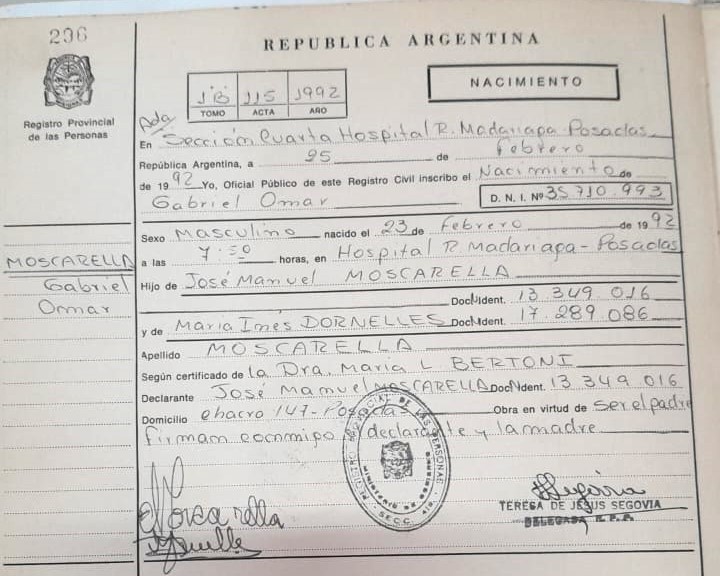 296
REPUBLICA ARGENTINA
Registro Provincial
de las Personas
1B 115 1992
TOMO ACTA AÑO
NACIMIENTO
Acta
En Sección Cuarta Hospital R. Madariaga-Posadas
República Argentina, a 25 de febrero
de 1992 Yo, Oficial Público de este Registro Civil inscribo el Nacimiento de
Gabriel Omar D. N. I. Nº 35 710.993
Sexo masculino nacido el 23 de febrero de 1992
a las 7:50 horas, en Hospital R Madariaga-Posadas
MOSCARELLA
Gabriel
Omar
Hijo de José Manuel MOSCARELLA
DocNdent. 13 349.016
y de Maria Ines DORNELLES DocNdent. 17.289.086
Apellido MOSCARELLA
Según certificado de la Dra. Maria L BERTONI
Declarante José Manuel MOSCARELLA DocNdent. 13 349.016
Domicilio chacra 147-Posadas Obra en virtud de ser el padre
firman conmigo declarante y la madre
Moscarella
TERESA DE JESUS SEGOVIA
DELEGADA R.P.P.